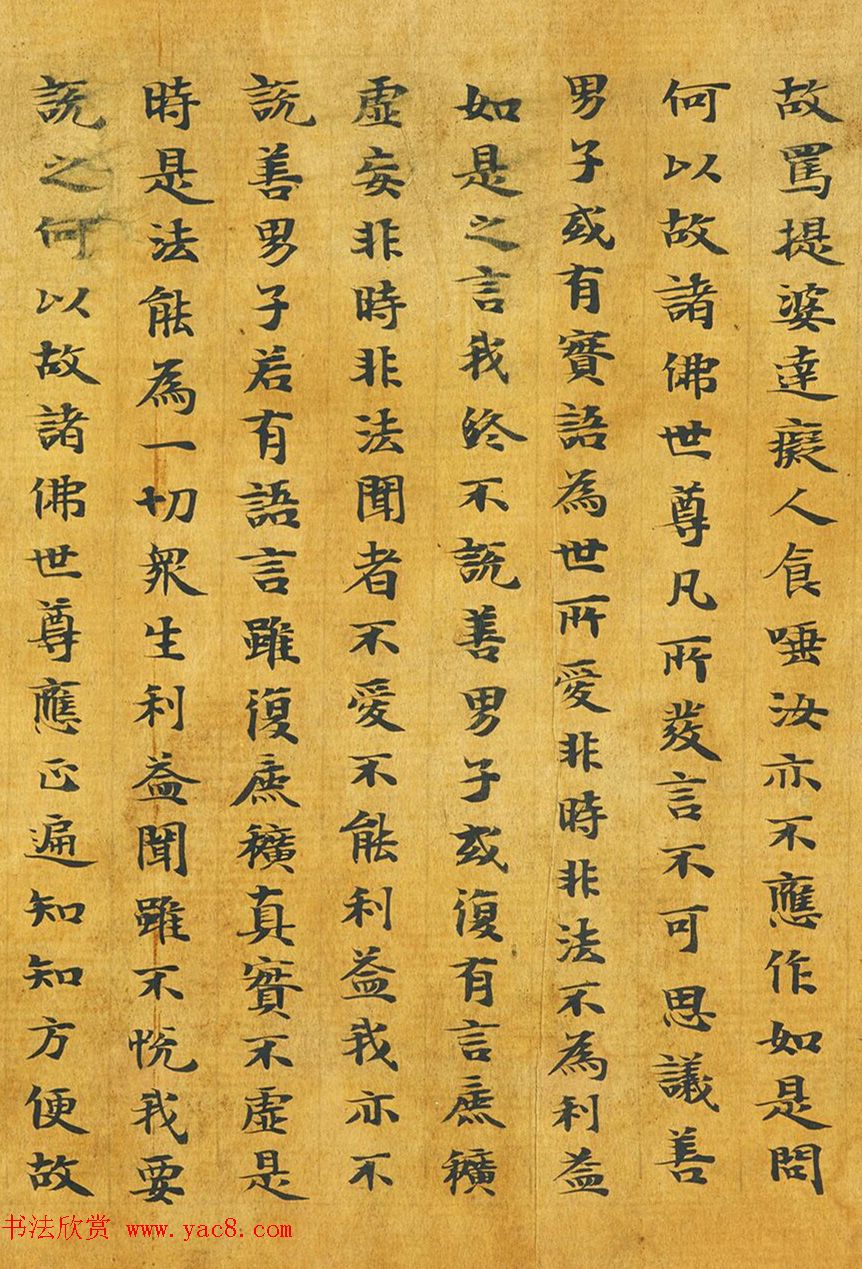 故罵提婆達癡人食唾汝亦不應作如是問
何以故諸佛世尊凡所發言不可思議善
男子或有實語為世所愛非時非法不為利益
如是之言我終不說善男子或復有言麁獷
虛妄非時非法聞者不愛不能利益我亦不
說善男子若有語言雖復麁獷真實不虛是
時是法能為一切眾生利益聞雖不悅我要
說之何以故諸佛世尊應正遍知知方便故
书法欣赏 www.yac8.com